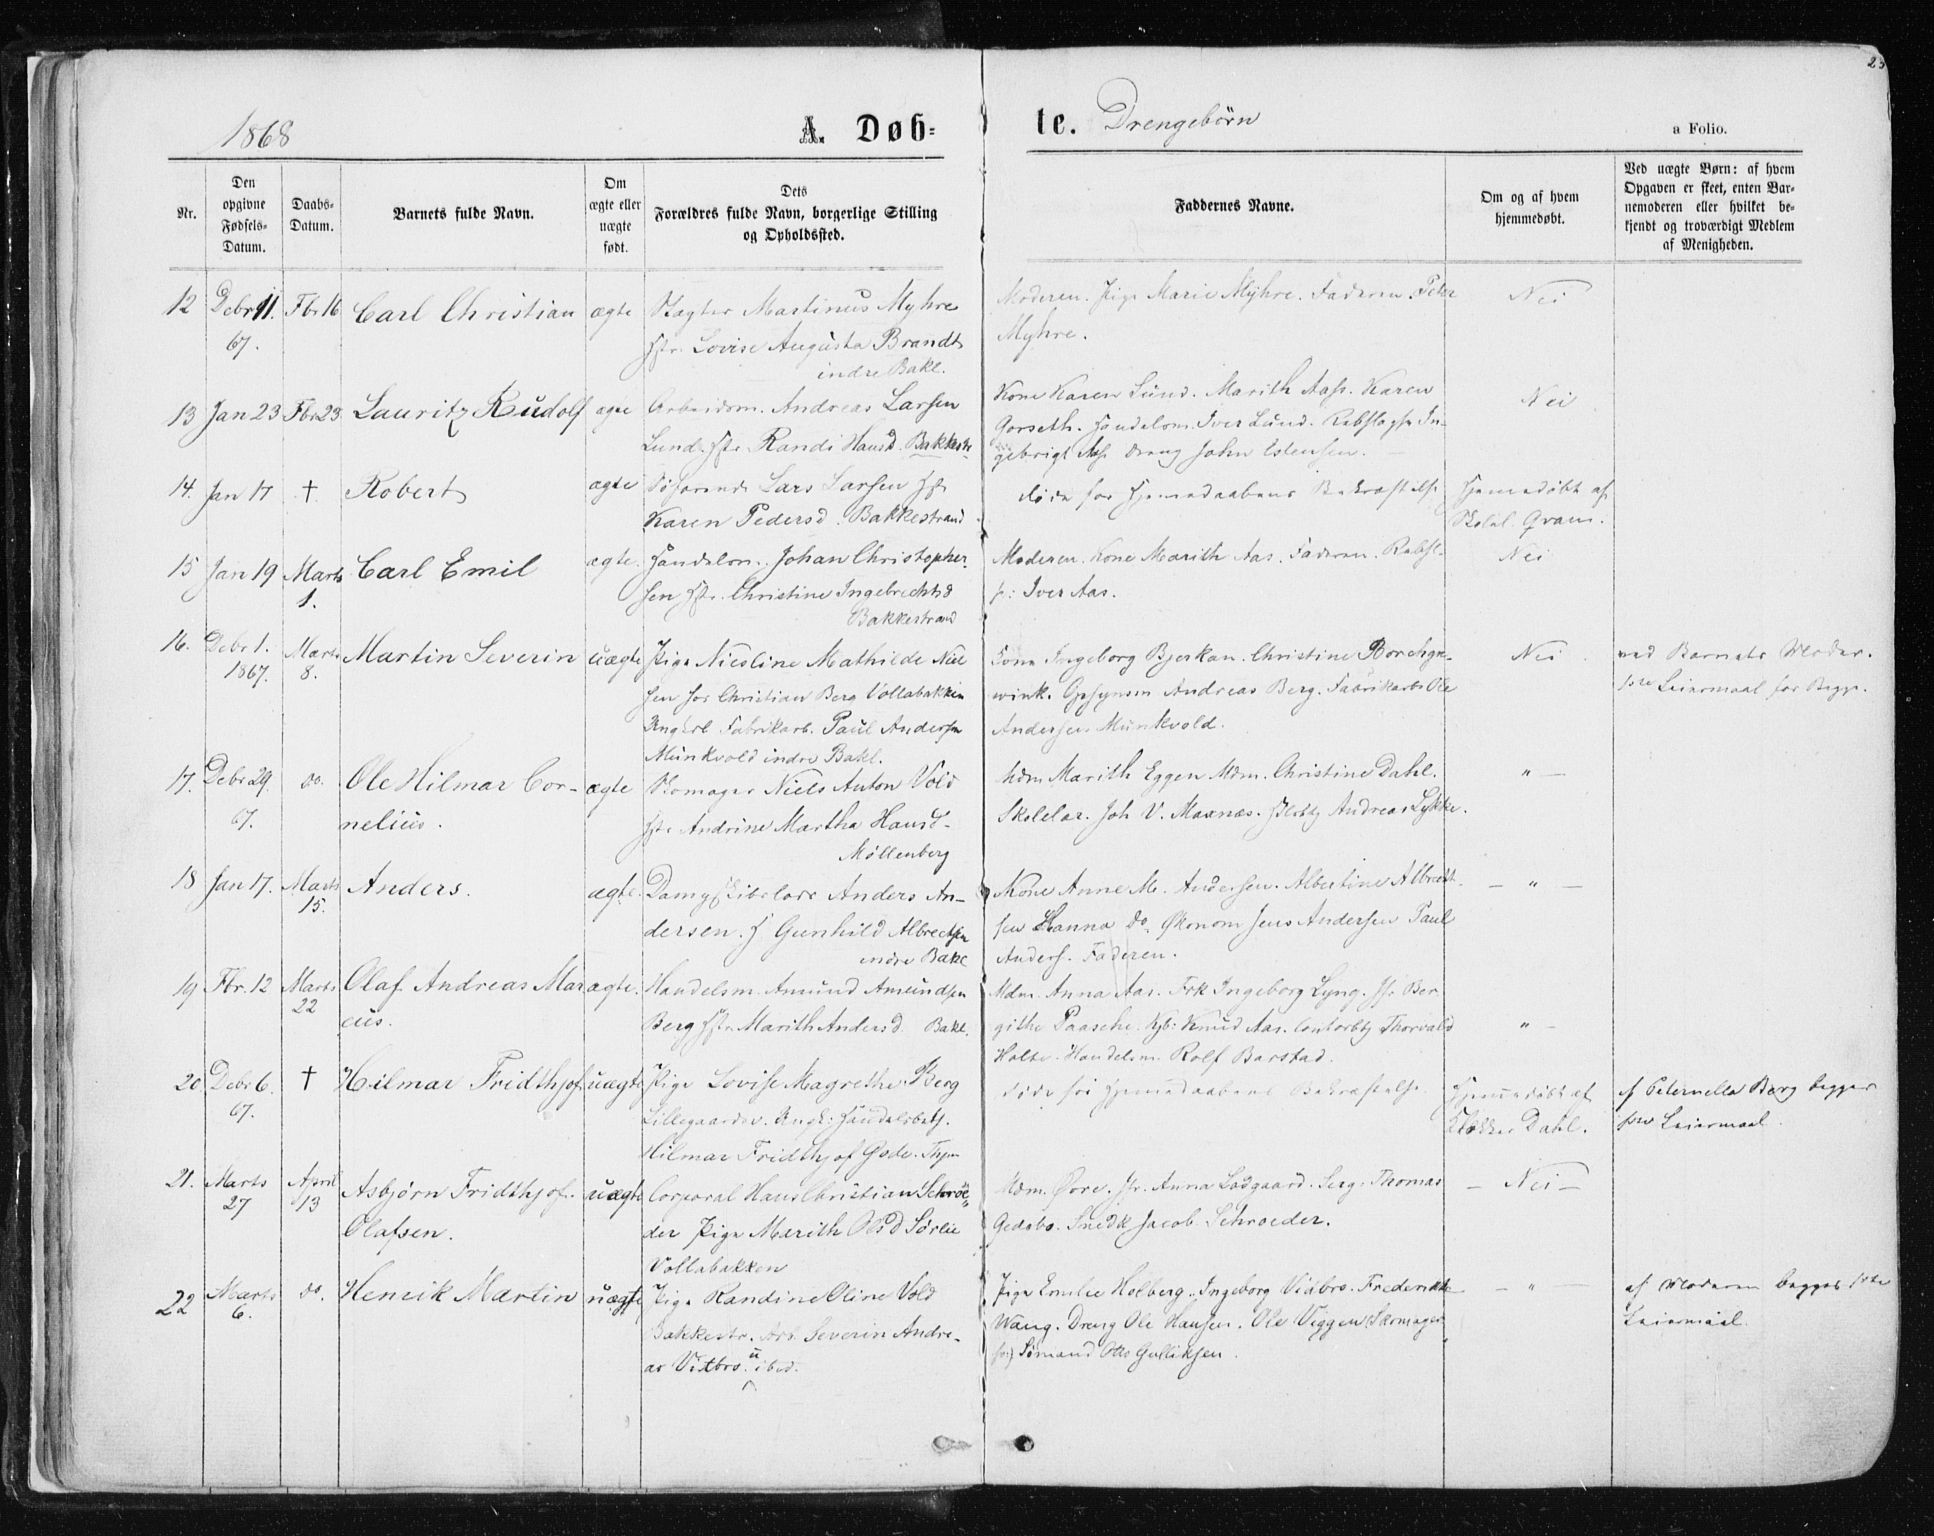 23
1868
A. Døb= te. Drengebörn
a Folio.
Nr.
Den opgivne Fødsels-Datum.
Daabs-Datum.
Barnets fulde Navn.
Om ægte eller uægte født.
Dets Forældres fulde Navn, borgerlige Stilling og Opholdssted.
Faddernes Navne.
Om og af hvem hjemmedøbt.
Ved uægte Børn: af hvem Opgaven er skeet, enten Barnemoderen eller hvilket bekjendt og troværdigt Medlem af Menigheden.
12 Debr 11. Fbr 16 Carl Christian ægte Slagter Martinus Myhre Moderen. Pige Marie Myhre. Faderen. Peter Nei
67. Hstr. Lovise Augusta Brandt Myhre.
indre Bakl.
13 Jan 23 Fbr 23. Lauritz Rudolf ægte Arbeidsm. Andreas Larsen Kone Karen Lund. Marith Aas. Karen Nei
Lund. Hstr Randi Hansd. Bakkestr. Gorseth. Handelsm. Iver Lund. Rebslagsv In-
gebrigt Aas Dreng John Estensen.
14. Jan 17 † Robert ægte Søfarende Lars Larsen Hstr døde før Hjemedaabens Bekræftelse Hjemedøbt af
Karen Pedersd. Bakkestrand Skolel. Qvam.
15 Jan 19 Marts Carl Emil ægte. Handelsm. Johan Christopher- Moderen. Kone Marith Aas. Faderen. Rebsl- Nei
1. sen Hstr. Christine Ingebrechtsd Iver Aas.
Bakkestrand
16. Debr 1. Marts Martin Severin uægte Pige Nicoline Mathilde Niel Kone Ingeborg Bjerkan. Christine Borchgre- Nei ved Barnets Moder.
1867. 8. sen hos Christian Berg Vollabakken wink. Opsynsm Andreas Berg. Fabrikarb Ole Leiermaal for Begge.
Ungkrl Fabrikarb. Paul Andersen Andersen Munkvold.
Munkvold indre Bakl.
17. Debr 29. do. Ole Hilmar Cor- ægte Skomager Niels Anton Vold Mdm Marith Eggen Mdm. Christine Dahl. " —
67. nelius. Hstr Andrine Martha Hansd. Skolelær. Joh V. Maxnæs. Andreas Lykke.
Møllenberg
18 Jan 17. Marts Anders. ægte. Anders An- Kone Anne M. Andersen. Albertine Albrecht- — " —
15. dersen. H Gunhild Albrechtsen sen Hanna do. Økonom Jens Andersen Paul
indre Bakl Anders. Faderen.
19 Fbr. 12 Marts Olaf Andreas Mar ægte. Handelsm. Amund Amundsen Mdm. Anna Aas. Frk Ingeborg Lyng. Jfr Ber-
22 cus. Berg Hstr Marith Andersd. Bakl. githe Paasche. Kjb: Knud Aas. Contorbtj Thorvald " —
Holte. Handelsm. Rolf Barstad.
20 Debr 6. † Hilmar Fridthjof uægte Pige Lovise Magrethe Berg døde før Hjemedaabens Bekræftelse. Hjemmedøbt af af Peternelle Berg begges
67. Lillegaardsv. Ungk: Handelsbetj. Klokker Dahl. Leiermaal.
Hilmar Fridthjof Gade. Thjem
21. Marts April Asbjørn Fridthjof uægte Corporal Hans Christian Schrö- Mdm. Øvre. Jfr. Anna Ladgaard. Serg. Thomas — Nei —
27 13 Olafsen. der Pige Marith Olsd Sørlie Gedebo. Snedk Jacob Schroeder.
Vollabakken
22 Marts do. Henrik Martin uægte Pige Randine Oline Vold Pige Emilie Holberg. Ingeborg Vidbro. Frederikke — " — af Moderen begges 1ste
6. Bakkestr. Arb. Severin Andre- Wang. Dreng Ole Hansen. Ole Viggen Skomager Leiermaal.
as Vidbro. ibid. Sømand Otto Gulliksen.